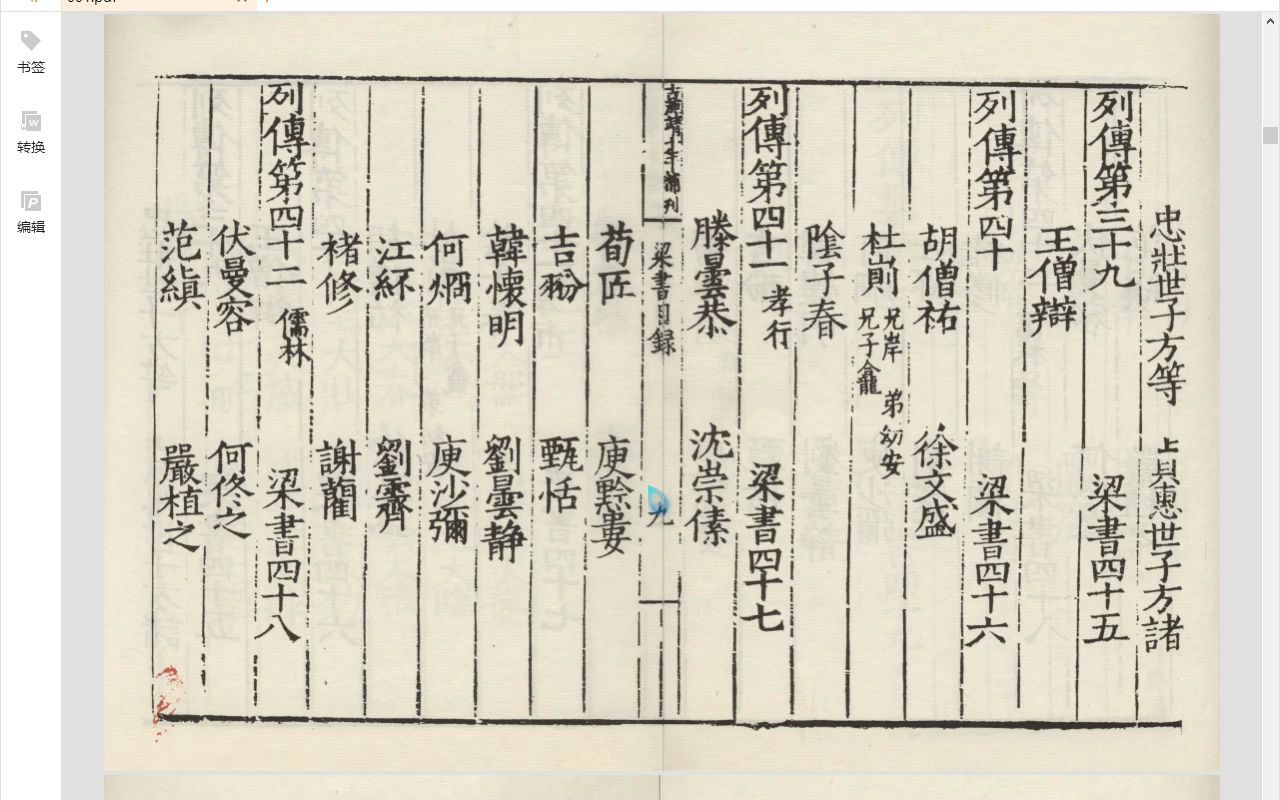 书签
转换
编辑
忠壯世子方等 貞惠世子方諸
列傳第三十九 梁書四十五
王僧辯
列傳第四十 梁書四十六
胡僧祐 徐文盛
杜崱 兄岸 弟幼安 兄子龕
陰子春
列傳第四十一 孝行 梁書四十七
滕曇恭 沈崇傃
十年補刊 梁書目録 九
荀匠 庾黔婁
吉翂 甄恬
韓懷明 劉曇静
何烱 庾沙彌
江紑 劉霽
褚修 謝藺
列傳第四十二 儒林 梁書四十八
伏曼容 何佟之
范縝 嚴植之